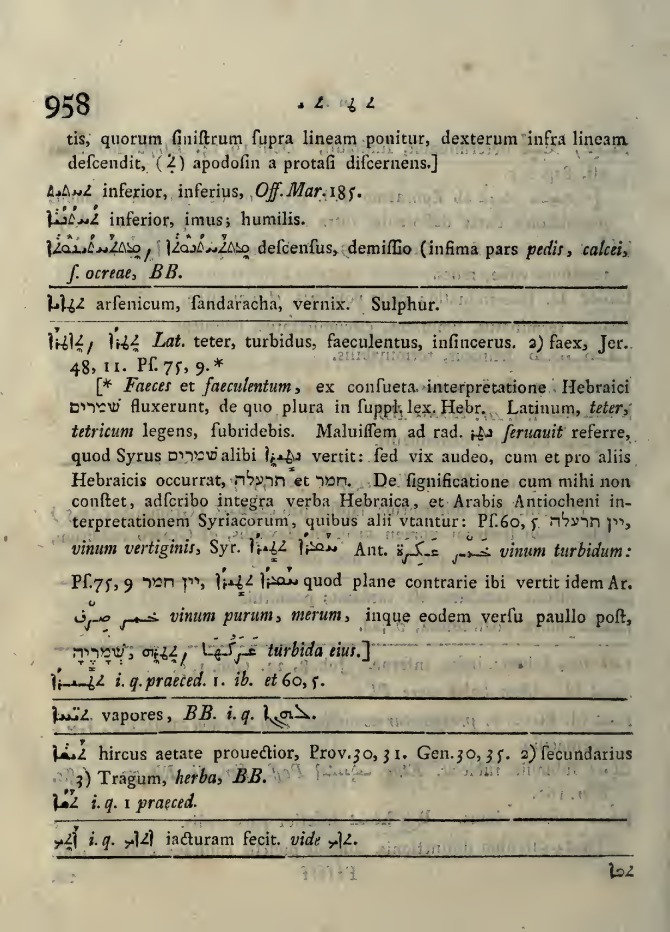 958
tis, quorum ſiniſtrum ſupra lineam ponitur, dexterum infra lineam
deſcendit, (ܬ) apodoſin a protaſi diſcernens.]
ܬܚܬܝ inferior, inferius, Off. Mar. 185.
ܬܚܬܝܐ inferior, imus; humilis.
deſcenſus, demiſſio (infima pars pedis, calcei,
ſ. ocreae, BB.
arſenicum, ſandaracha, vernix. Sulphur.
Lat. teter, turbidus, faeculentus, inſincerus. 2) faex, Jer.
48, 11. Pſ. 75, 9.*
[* Faeces et faeculentum, ex conſueta interpretatione Hebraici
שמרים fluxerunt, de quo plura in ſuppl. lex. Hebr. Latinum, teter,
tetricum legens, ſubridebis. Maluiſſem ad rad. ܢܛܪ ſeruauit referre,
quod Syrus שמרים alibi vertit: ſed vix audeo, cum et pro aliis
Hebraicis occurrat, תרעלה et חמר. De ſignificatione cum mihi non
conſtet, adſcribo integra verba Hebraica, et Arabis Antiocheni in-
terpretationem Syriacorum, quibus alii vtantur: Pſ. 60, 5 יין תרעלה,
vinum vertiginis, Syr. ܚܡܪܐ Ant. خمر عكرة vinum turbidum:
Pſ. 75, 9 יין חמר, ܚܡܪܐ quod plane contrarie ibi vertit idem Ar.
خمر صرف vinum purum, merum, inque eodem verſu paullo poſt,
שְׁמָרֶיהָ, عكرها turbida eius.]
i. q. praeced. 1. ib. et 60, 5.
vapores, BB. i. q.
ܬܝܫܐ hircus aetate prouectior, Prov. 30, 31. Gen. 30, 35. 2) ſecundarius
3) Tragum, herba, BB.
i. q. 1 praeced.
i. q. iacturam fecit. vide